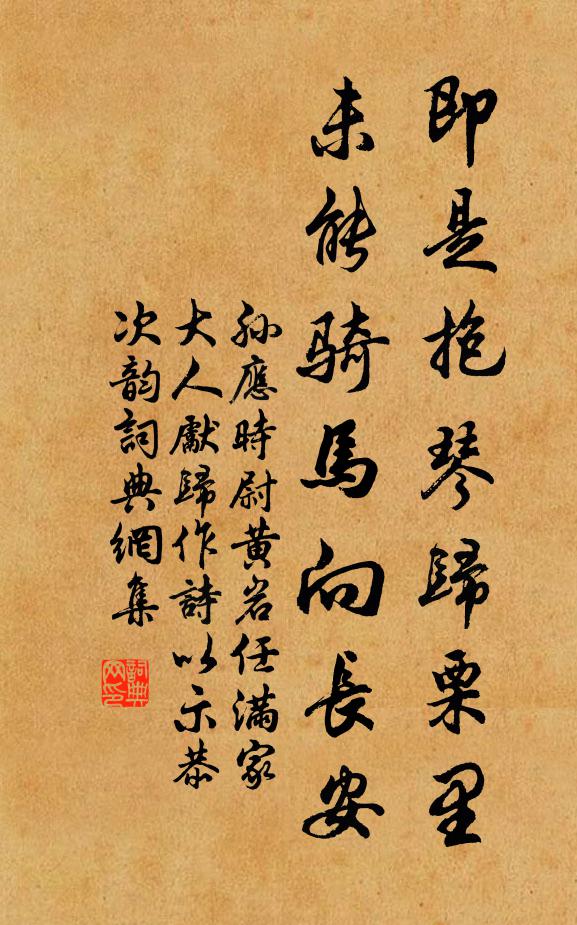 即是抱琴歸栗里
未能騎馬向長安
孫應時尉黃岩任滿家
大人獻歸作詩以示恭
次韵詞典網集
詞典网印